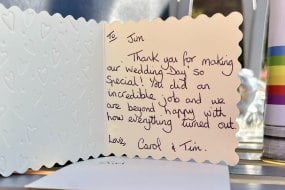 To Jim
Thank you for making
our Wedding Day so
Special! You did an
incredible job and we
are beyond happy with
how everything turned out
Love, Carol & Tim.